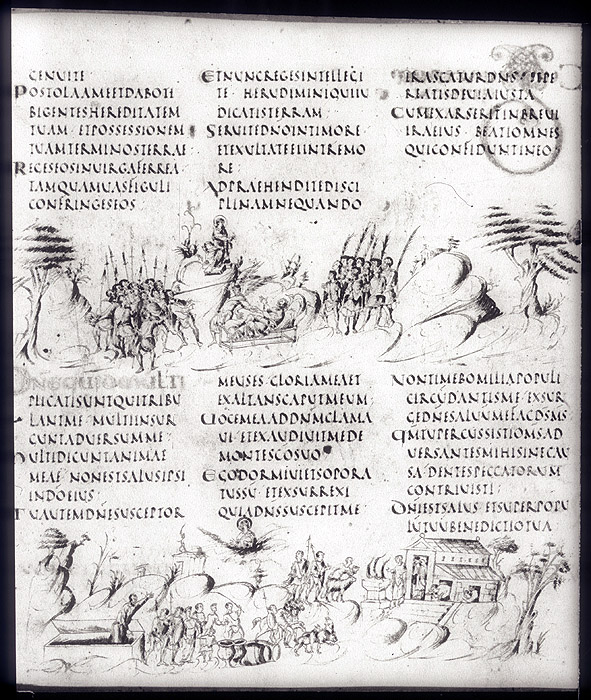 CENUITE
POSTULAAMEETDABOTI
BIGENTESHEREDITATEM
TUAM ETPOSSESSIONEM
TUAMTERMINOSTERRAE
RECESEOSINUIRGAFERREA
TAMQUAMUASFIGULI
CONFRINGESEOS
ETNUNCREGESINTELLEGI
TE ERUDIMINIQUIIU
DICATISTERRAM
SERUITEDNOINTIMORE
ETEXULTATEEIINTREMO
RE
ADPRAEHENDITEDISCI
PLINAMNEQUANDO
IRASCATURDNS ETPE
REATISDEUIAIUSTA
CUMEXARSERITINBREUI
IRAEIUS BEATIOMNES
QUICONFIDUNTINEO
DNEQUIDMULTI
PLICATISUNTQUITRIBU
LANTME MULTIINSUR
GUNTADUERSUMME
MULTIDICUNTANIMAE
MEAE NONESTSALUSIPSI
INDOEIUS
TUAUTEMDNESUSCEPTOR
MEUSES GLORIAMEAET
EXALTANSCAPUTMEUM
UOCEMEAADDNMCLAMA
UI ETEXAUDIUITMEDE
MONTESCOSUO
EGODORMIUIETSOPORA
TUSSU ETEXSURREXI
QUIADNSSUSCEPITME
NONTIMEBOMILIAPOPULI
CIRCUDANTISME EXSUR
GEDNESALUUMEFACDSMS
QMTUPERCUSSISTIOMSAD
UERSANTESMIHISINECAU
SA DENTESPECCATORUM
CONTRIUISTI
DNIESTSALUS ETSUPERPOPU
LUTUUBENEDICTIOTUA